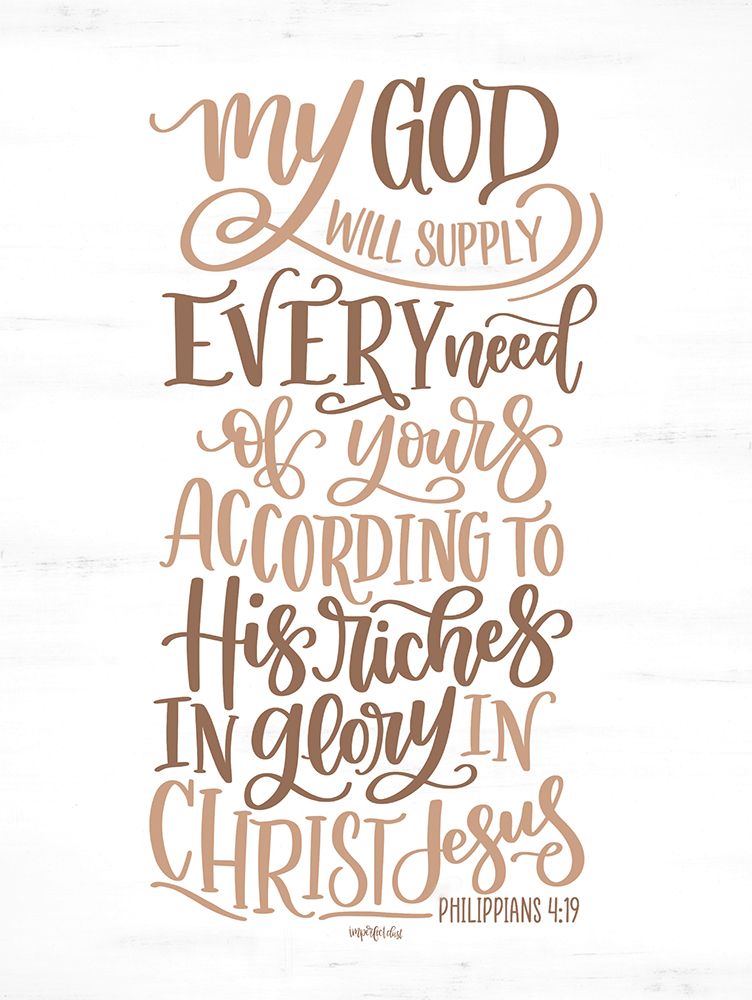 my GOD
WILL SUPPLY
EVERY need
of yours
ACCORDING TO
His riches
IN glory IN
CHRIST Jesus
PHILIPPIANS 4:19
imperfect dust